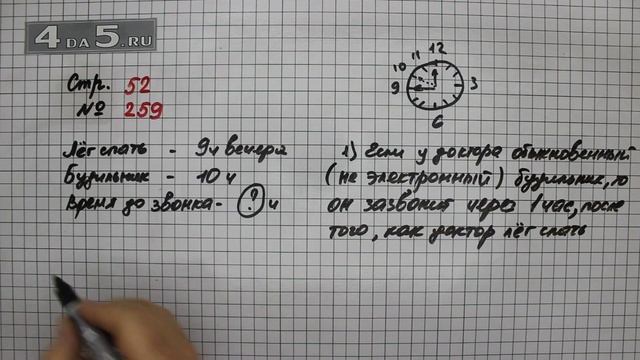 4DA5.RU
Стр. 52
№ 259
12
11
10
9
3
6
Лёг спать - 9ч вечера
Будильник - 10 ч
Время до звонка - ? ч
1) Если у доктора обыкновенный
(не электронный) будильник, то
он зазвонит через 1 час, после
того, как доктор лёг спать